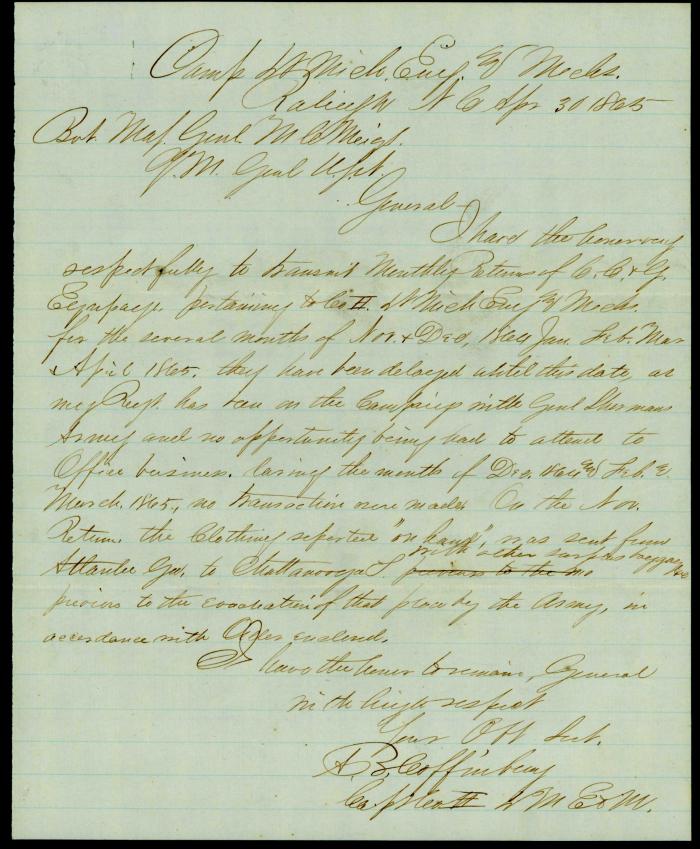 Camp 1st Mich. Eng. & Mechs.
Raleigh N C Apr 30 1865
Bvt. Maj. Genl. M C Meigs.
Q. M. Genl U.S.A.
General
I have the honor very
respectfully to transmit Monthly Return of C. C. & G.
Equipage. pertaining to Co H. 1st Mich Eng & Mechs.
for the several months of Nov. & Dec, 1864 Jan. Feb. Mar
& April 1865. they have been delayed until this date as
my Regt. has been on the Campaign with Genl Shermans
Army and no opportunity being had to attend to
Office business. during the months of Dec. 1864 & Feb. &
March. 1865, no transactions were made. On the Nov.
Return. the Clothing reported "on hand", was sent from
with other surplus baggage
Atlanta Ga. to Chattanooga T. previous to the
previous to the evacuation of that place by the Army, in
accordance with Orders enclosed.
I have the honor to remain, General
with high respect
Your Obt Svt.
A B. Coffinbury
Capt Co H 1st M E & M.